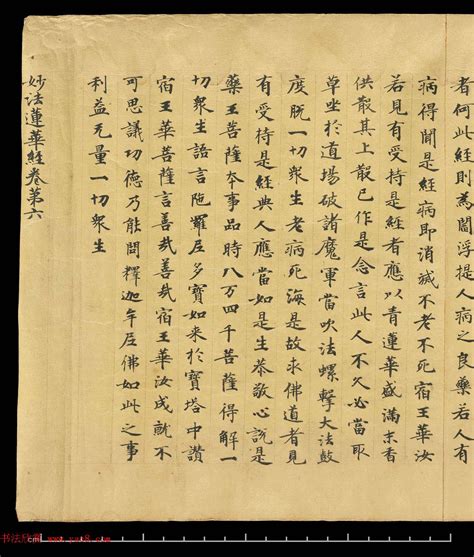 者何此經則為閻浮提人病之良藥若人有
病得聞是經病即消滅不老不死宿王華汝
若見有受持是經者應以青蓮華盛滿末香
供散其上散已作是念言此人不久必當取
草坐於道場破諸魔軍當吹法螺擊大法鼓
度脫一切眾生老病死海是故求佛道者見
有受持是經典人應當如是生恭敬心說是
藥王菩薩本事品時八万四千菩薩得解一
切眾生語言陁羅尼多寶如來於寶塔中讚
宿王華菩薩言善哉善哉宿王華汝成就不
可思議功德乃能問釋迦牟尼佛如此之事
利益无量一切眾生
妙法蓮華經卷第六
cm
书法欣赏 www.yac8.com